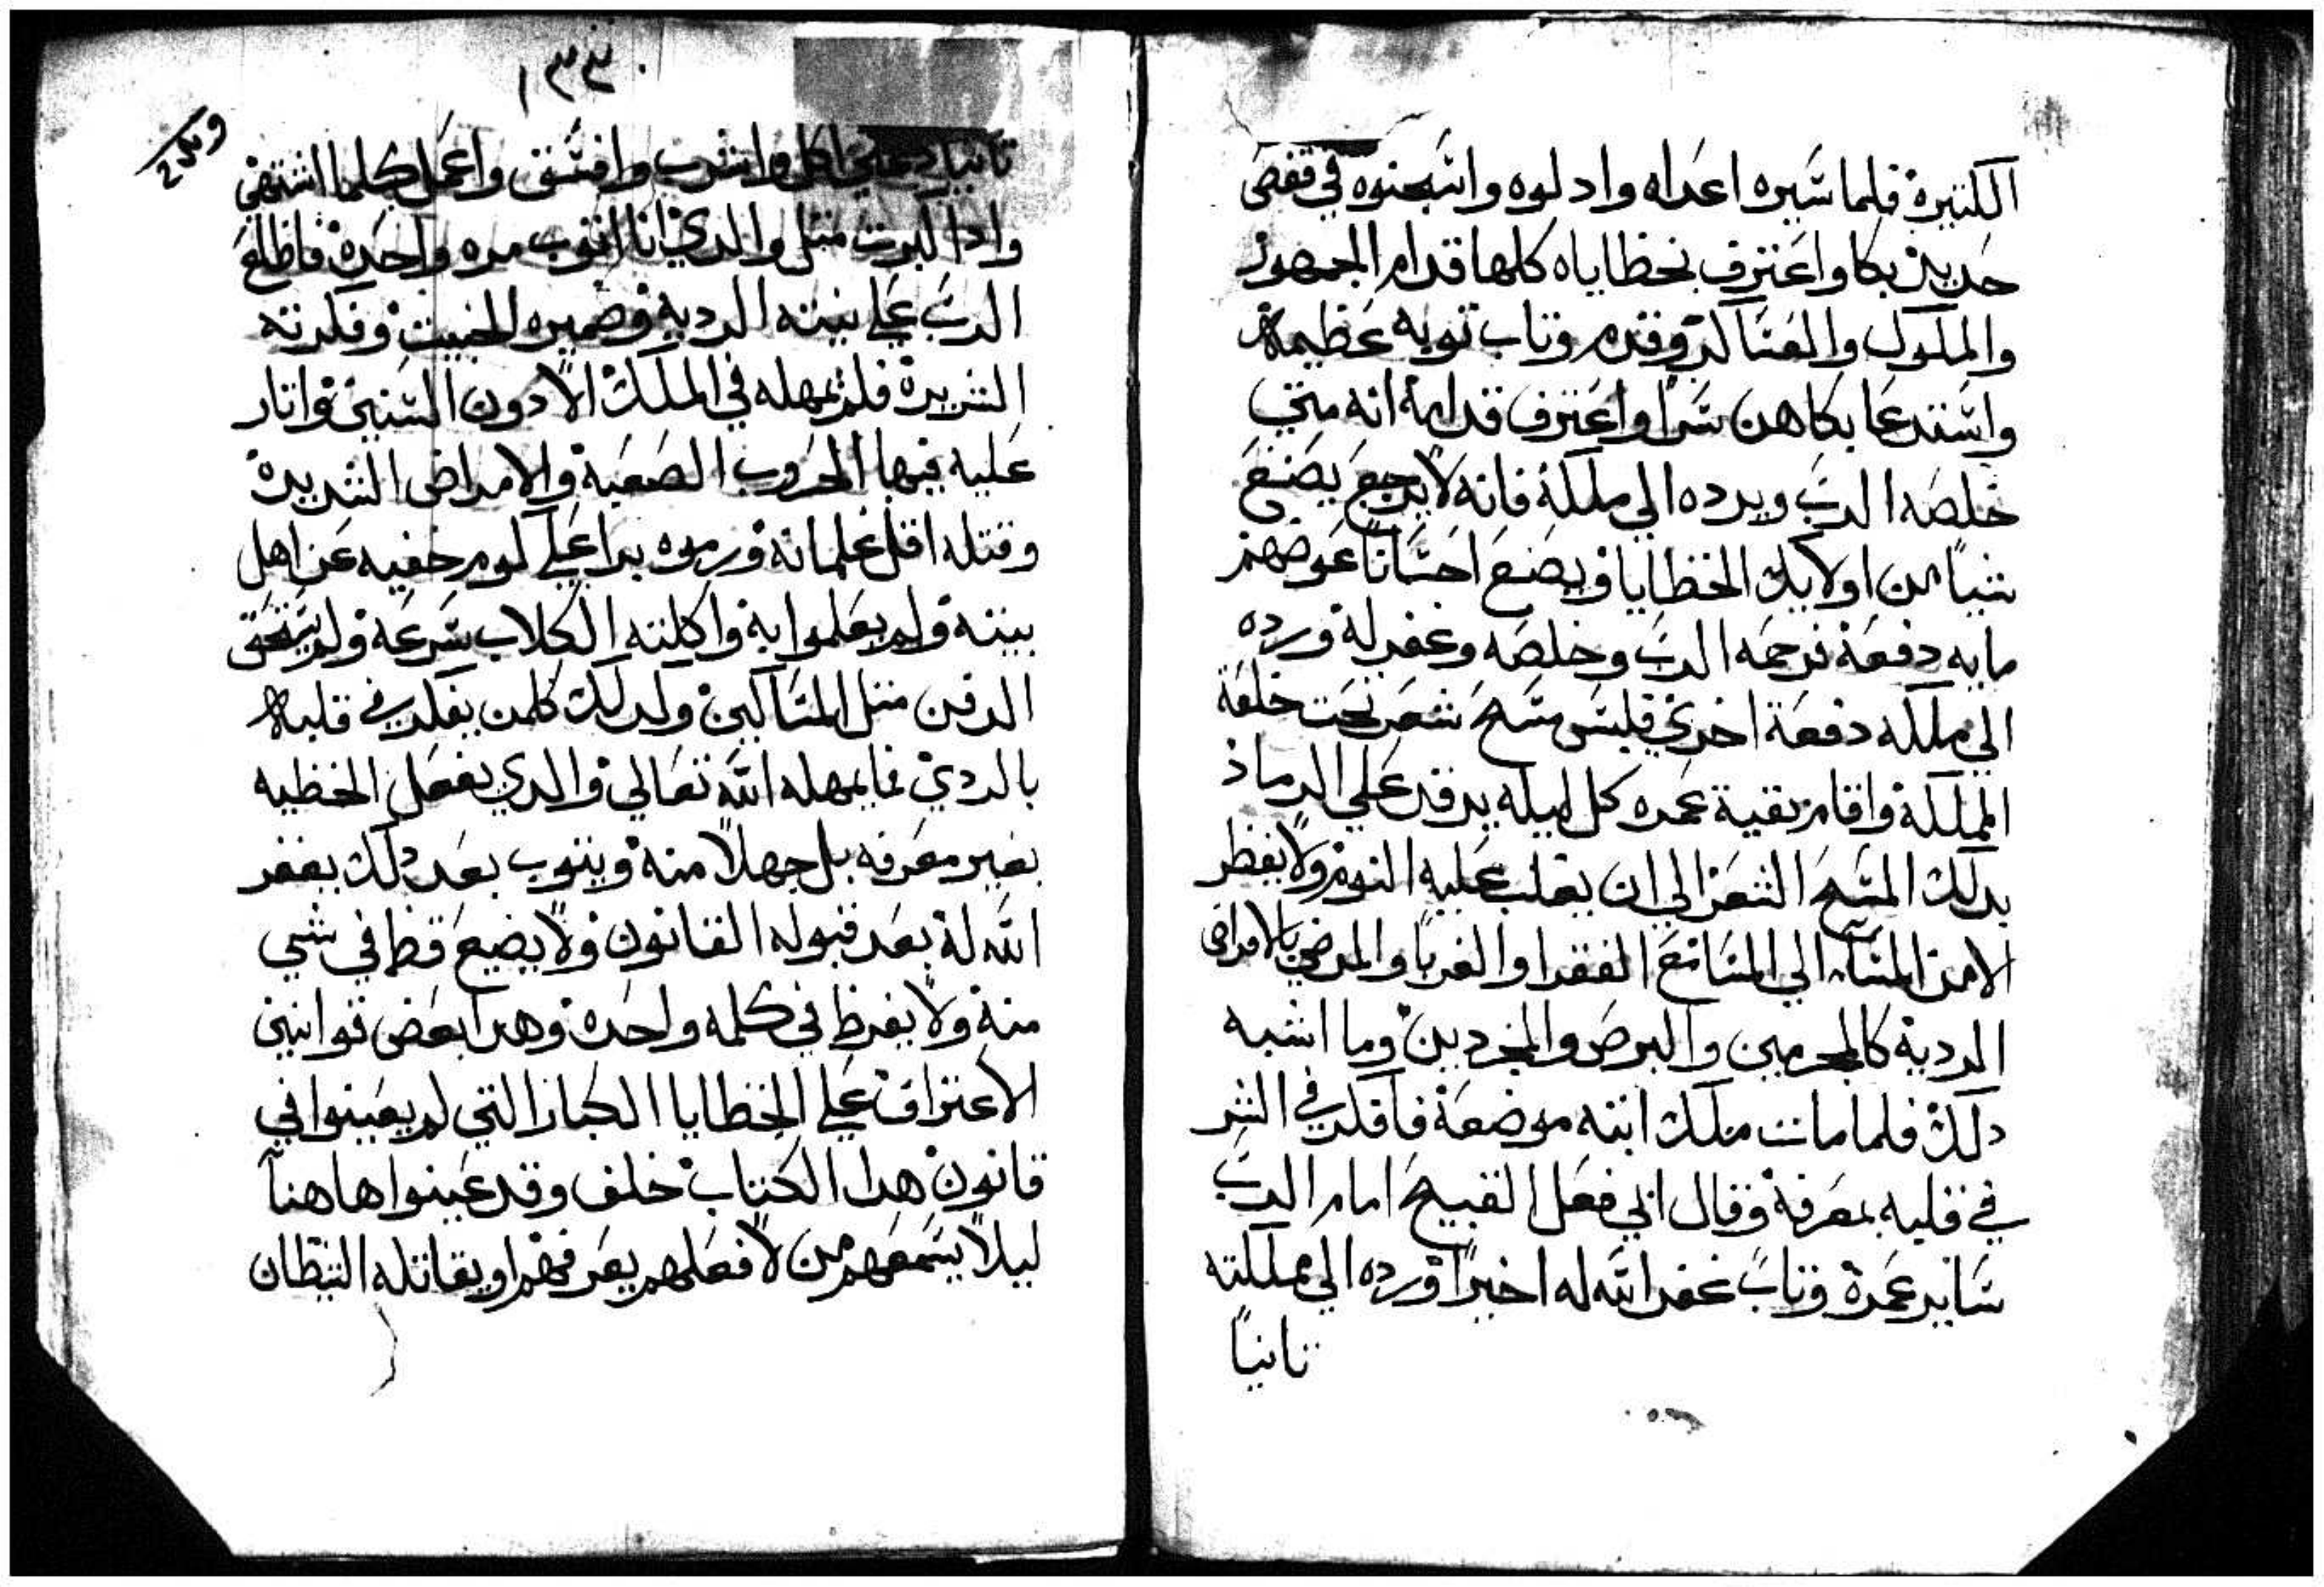 الكتيره فلما سيره اعداه وادلوه واسجنوه في قفص
حديد بكا واعترف بخطاياه كلها قدام الجمهور
والملوك والعساكر وقدم وتاب توبه عظيمة
واستدعا بكاهن سرا واعترف قدامه انه متي
خلصه الرب ويرده الي ملكه فانه لا يرجع يصنع
شيا من اولايك الخطايا ويصنع احسانا عوضهم
مايه دفعة فرحمه الرب وخلصه وغفر له ورده
الي ملكه دفعة اخري فلبس مسح شعر تحت خلعة
المملكة واقام بقية عمره كل ليله يرقد علي الرماد
بدلك المسح الشعر الي ان يغلب عليه النوم ولا يفطر
الا من المسا الي المسا مع الفقرا والغربا والمرضي بالامراض
الرديه كالمجدمين والبرص والمجردين وما اشبه
دلك فلما مات ملك ابنه موضعة فافكر في الشر
في قلبه بمعرفة وقال ابي فعل القبيح امام الرب
ساير عمرة وتاب غفر الله له اخيرا ورده الي مملكته
تانيا
١٣٣
تانيا دعني اكل واشرب وافسق واعمل كلما اشتهي
وادا كبرت متل والدي انا اتوب مره واحدة فاطلع
الرب علي نيته الرديه وضميره الخبيت وفكرته
الشريرة فلم يمهله في الملك الا دون السنين واتار
عليه فيها الحروب الصعبة والامراض الشديدة
وقتله اقل غلمانه ورموه برا علي كوم خفيه عن اهل
بيته ولم يعلموا به واكلته الكلاب سرعة ولم يستحق
الدفن متل المساكين ولدلك كلمن يفكر في قلبه
بالردي فما يمهله الله تعالي والدي يفعل الخطيه
بغير معرفه بل جهلا منه ويتوب بعد دلك يغفر
الله له بعد قبوله القانون ولا يضيع قط في شي
منه ولا يفرط في كلمه واحده وهدا بعض قوانين
الاعتراف علي الخطايا الكبار التي لم يعينوا في
قانون هدا الكتاب خلف وقد عينوا هاهنا
ليلا يسمعهم من لا فعلهم يعرفهم او يقاتله الشيطان